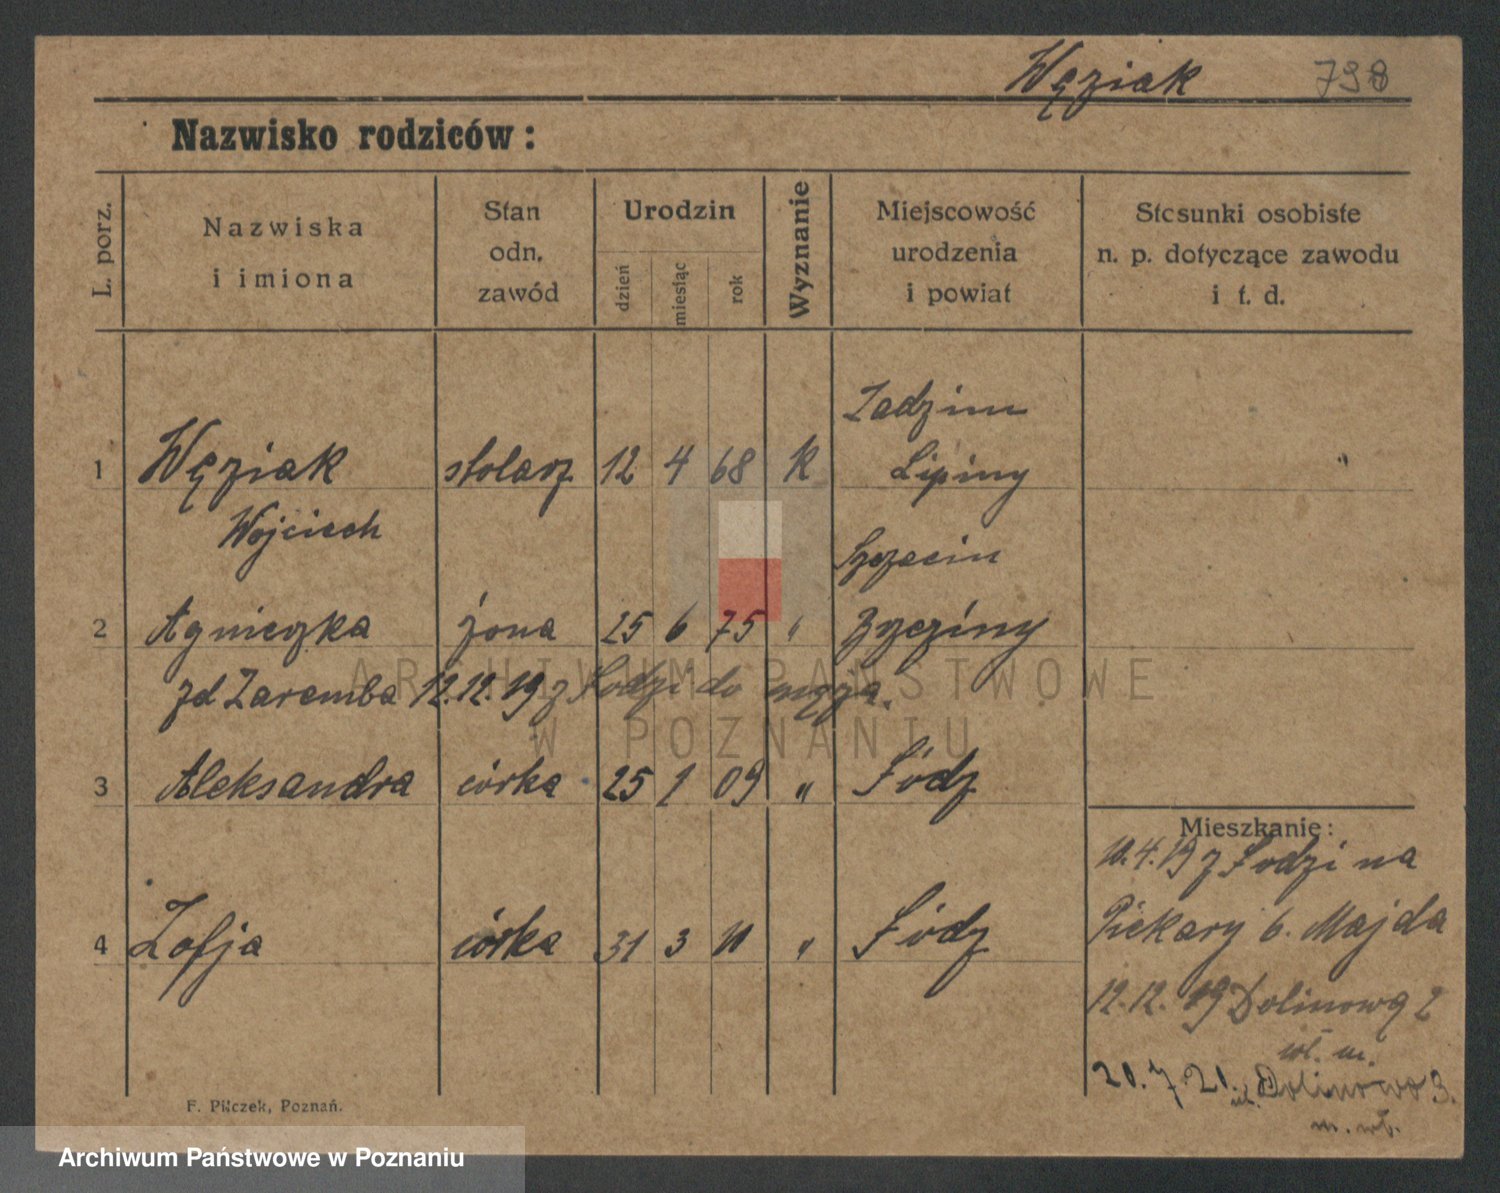 Węziak 798
Nazwisko rodziców:
L. porz.
Nazwiska
i imiona
Stan
odn.
zawód
Urodzin
dzień
miesiąc
rok
Wyznanie
Miejscowość
urodzenia
i powiat
Stosunki osobiste
n. p. dotyczące zawodu
i t. d.
Zadzim
1 Węziak stolarz 12 4 68 k Lipiny "
Wojciech
Szczecin
2 Agnieszka żona 25 6 75 "
zd Zaremba 12.12.19 z Łodzi do męża.
ARCHIWUM PAŃSTWOWE
W POZNANIU
3 Aleksandra córka 25 1 09 " Łódz
Mieszkanie:
10.4.19 z Łodzi na
Piekary 6. Majda
4 Zofja córka 31 3 11 " Łódz
12.12.19 Dolinowa 2
wł. m.
20.7.21. ul. Dolinowa 3.
m. wł.
F. Pilczek, Poznań.
Archiwum Państwowe w Poznaniu